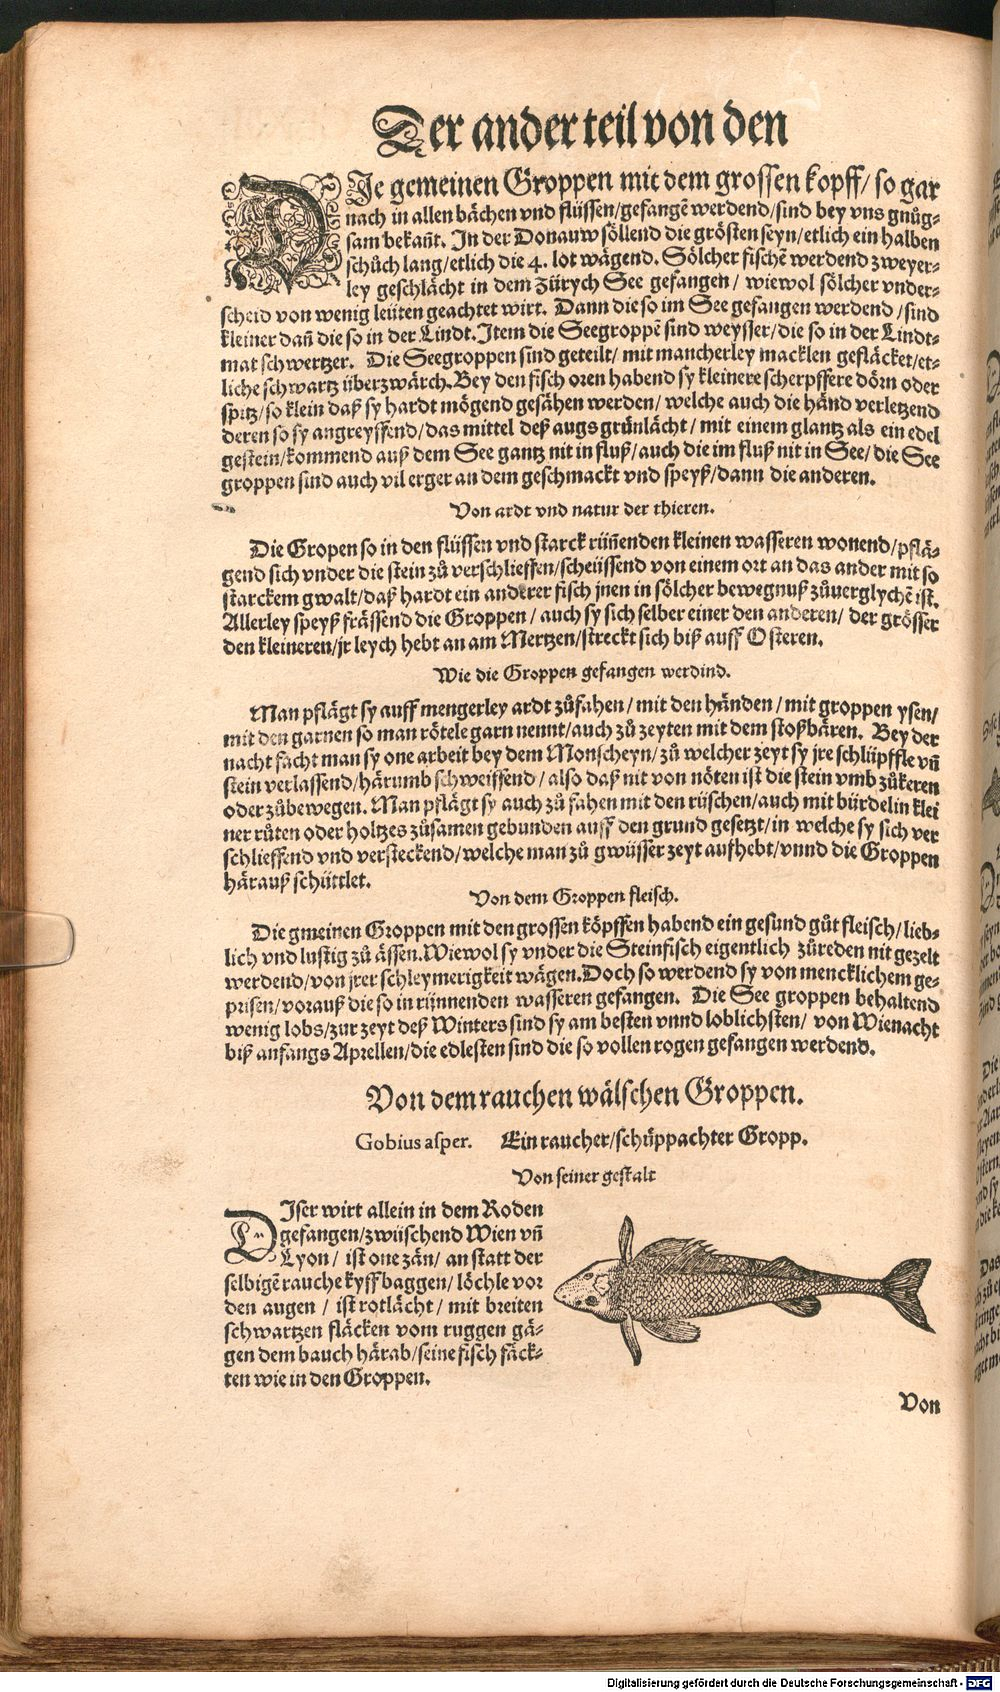 Der ander teil von den
DJe gemeinen Groppen mit dem grossen kopff/ so gar
nach in allen bächen vnd flüssen/gefangē werdend/sind bey vns gnůg-
sam bekañt. Jn der Donauw söllend die grösten seyn/etlich ein halben
schůch lang/etlich die 4. lot wägend. Sölcher fischē werdend zweyer-
ley geschlächt in dem Zürych See gefangen/ wiewol sölcher vnder-
scheid von wenig leüten geachtet wirt. Dann die so im See gefangen werdend/sind
kleiner dañ die so in der Lindt. Jtem die Seegroppē sind weysser/die so in der Lindt-
mat schwertzer. Die Seegroppen sind geteilt/mit mancherley macklen gefläcket/et-
liche schwartz überzwärch. Bey den fisch oren habend sy kleinere scherpffere dörn oder
spitz/so klein daß sy hardt mögend gesähen werden/ welche auch die händ verletzend
deren so sy angreyffend/das mittel deß augs grünlächt/ mit einem glantz als ein edel
gestein/kommend auß dem See gantz nit in fluß/auch die im fluß nit in See/die See
groppen sind auch vil erger an dem geschmackt vnd speyß/dann die anderen.
Von ardt vnd natur der thieren.
Die Gropen so in den flüssen vnd starck rüñenden kleinen wasseren wonend/pflä-
gend sich vnder die stein zů verschlieffen/scheüssend von einem ort an das ander mit so
starckem gwalt/daß hardt ein anderer fisch jnen in sölcher bewegnuß zůuerglychē ist.
Allerley speyß frässend die Groppen/ auch sy sich selber einer den anderen/ der grösser
den kleineren/jr leych hebt an am Mertzen/streckt sich biß auff Osteren.
Wie die Groppen gefangen werdind.
Man pflägt sy auff mengerley ardt zůfahen/mit den händen/mit groppen ysen/
mit den garnen so man rötele garn nennt/auch zů zeyten mit dem stoßbären. Bey der
nacht facht man sy one arbeit bey dem Monscheyn/zů welcher zeyt sy jre schlüpffle vñ
stein verlassend/härumb schweiffend/ also daß nit von nöten ist die stein vmb zůkeren
oder zůbewegen. Man pflägt sy auch zů fahen mit den rüschen/auch mit bürdelin klei
ner růten oder holtzes zůsamen gebunden auff den grund gesetzt/in welche sy sich ver
schlieffend vnd versteckend/welche man zů gwüsser zeyt aufhebt/vnnd die Groppen
härauß schüttlet.
Von dem Groppen fleisch.
Die gmeinen Groppen mit den grossen köpffen habend ein gesund gůt fleisch/lieb-
lich vnd lustig zů ässen. Wiewol sy vnder die Steinfisch eigentlich zůreden nit gezelt
werdend/von jrer schleymerigkeit wägen. Doch so werdend sy von mencklichem ge-
prisen/vorauß die so in rünnenden wasseren gefangen. Die See groppen behaltend
wenig lobs/zur zeyt deß Winters sind sy am besten vnnd loblichsten/ von Wienacht
biß anfangs Aprellen/die edlesten sind die so vollen rogen gefangen werdend.
Von dem rauchen wälschen Groppen.
Gobius asper. Ein raucher/schüppachter Gropp.
Von seiner gestalt
DJser wirt allein in dem Roden
gefangen/zwüschend Wien vñ
Lyon/ ist one zän/ an statt der
selbigē rauche kyffbaggen/löchle vor
den augen/ ist rotlächt/ mit breiten
schwartzen fläcken vom ruggen gä-
gen dem bauch härab/seine fisch fäck-
ten wie in den Groppen.
Von
Digitalisierung gefördert durch die Deutsche Forschungsgemeinschaft - DFG